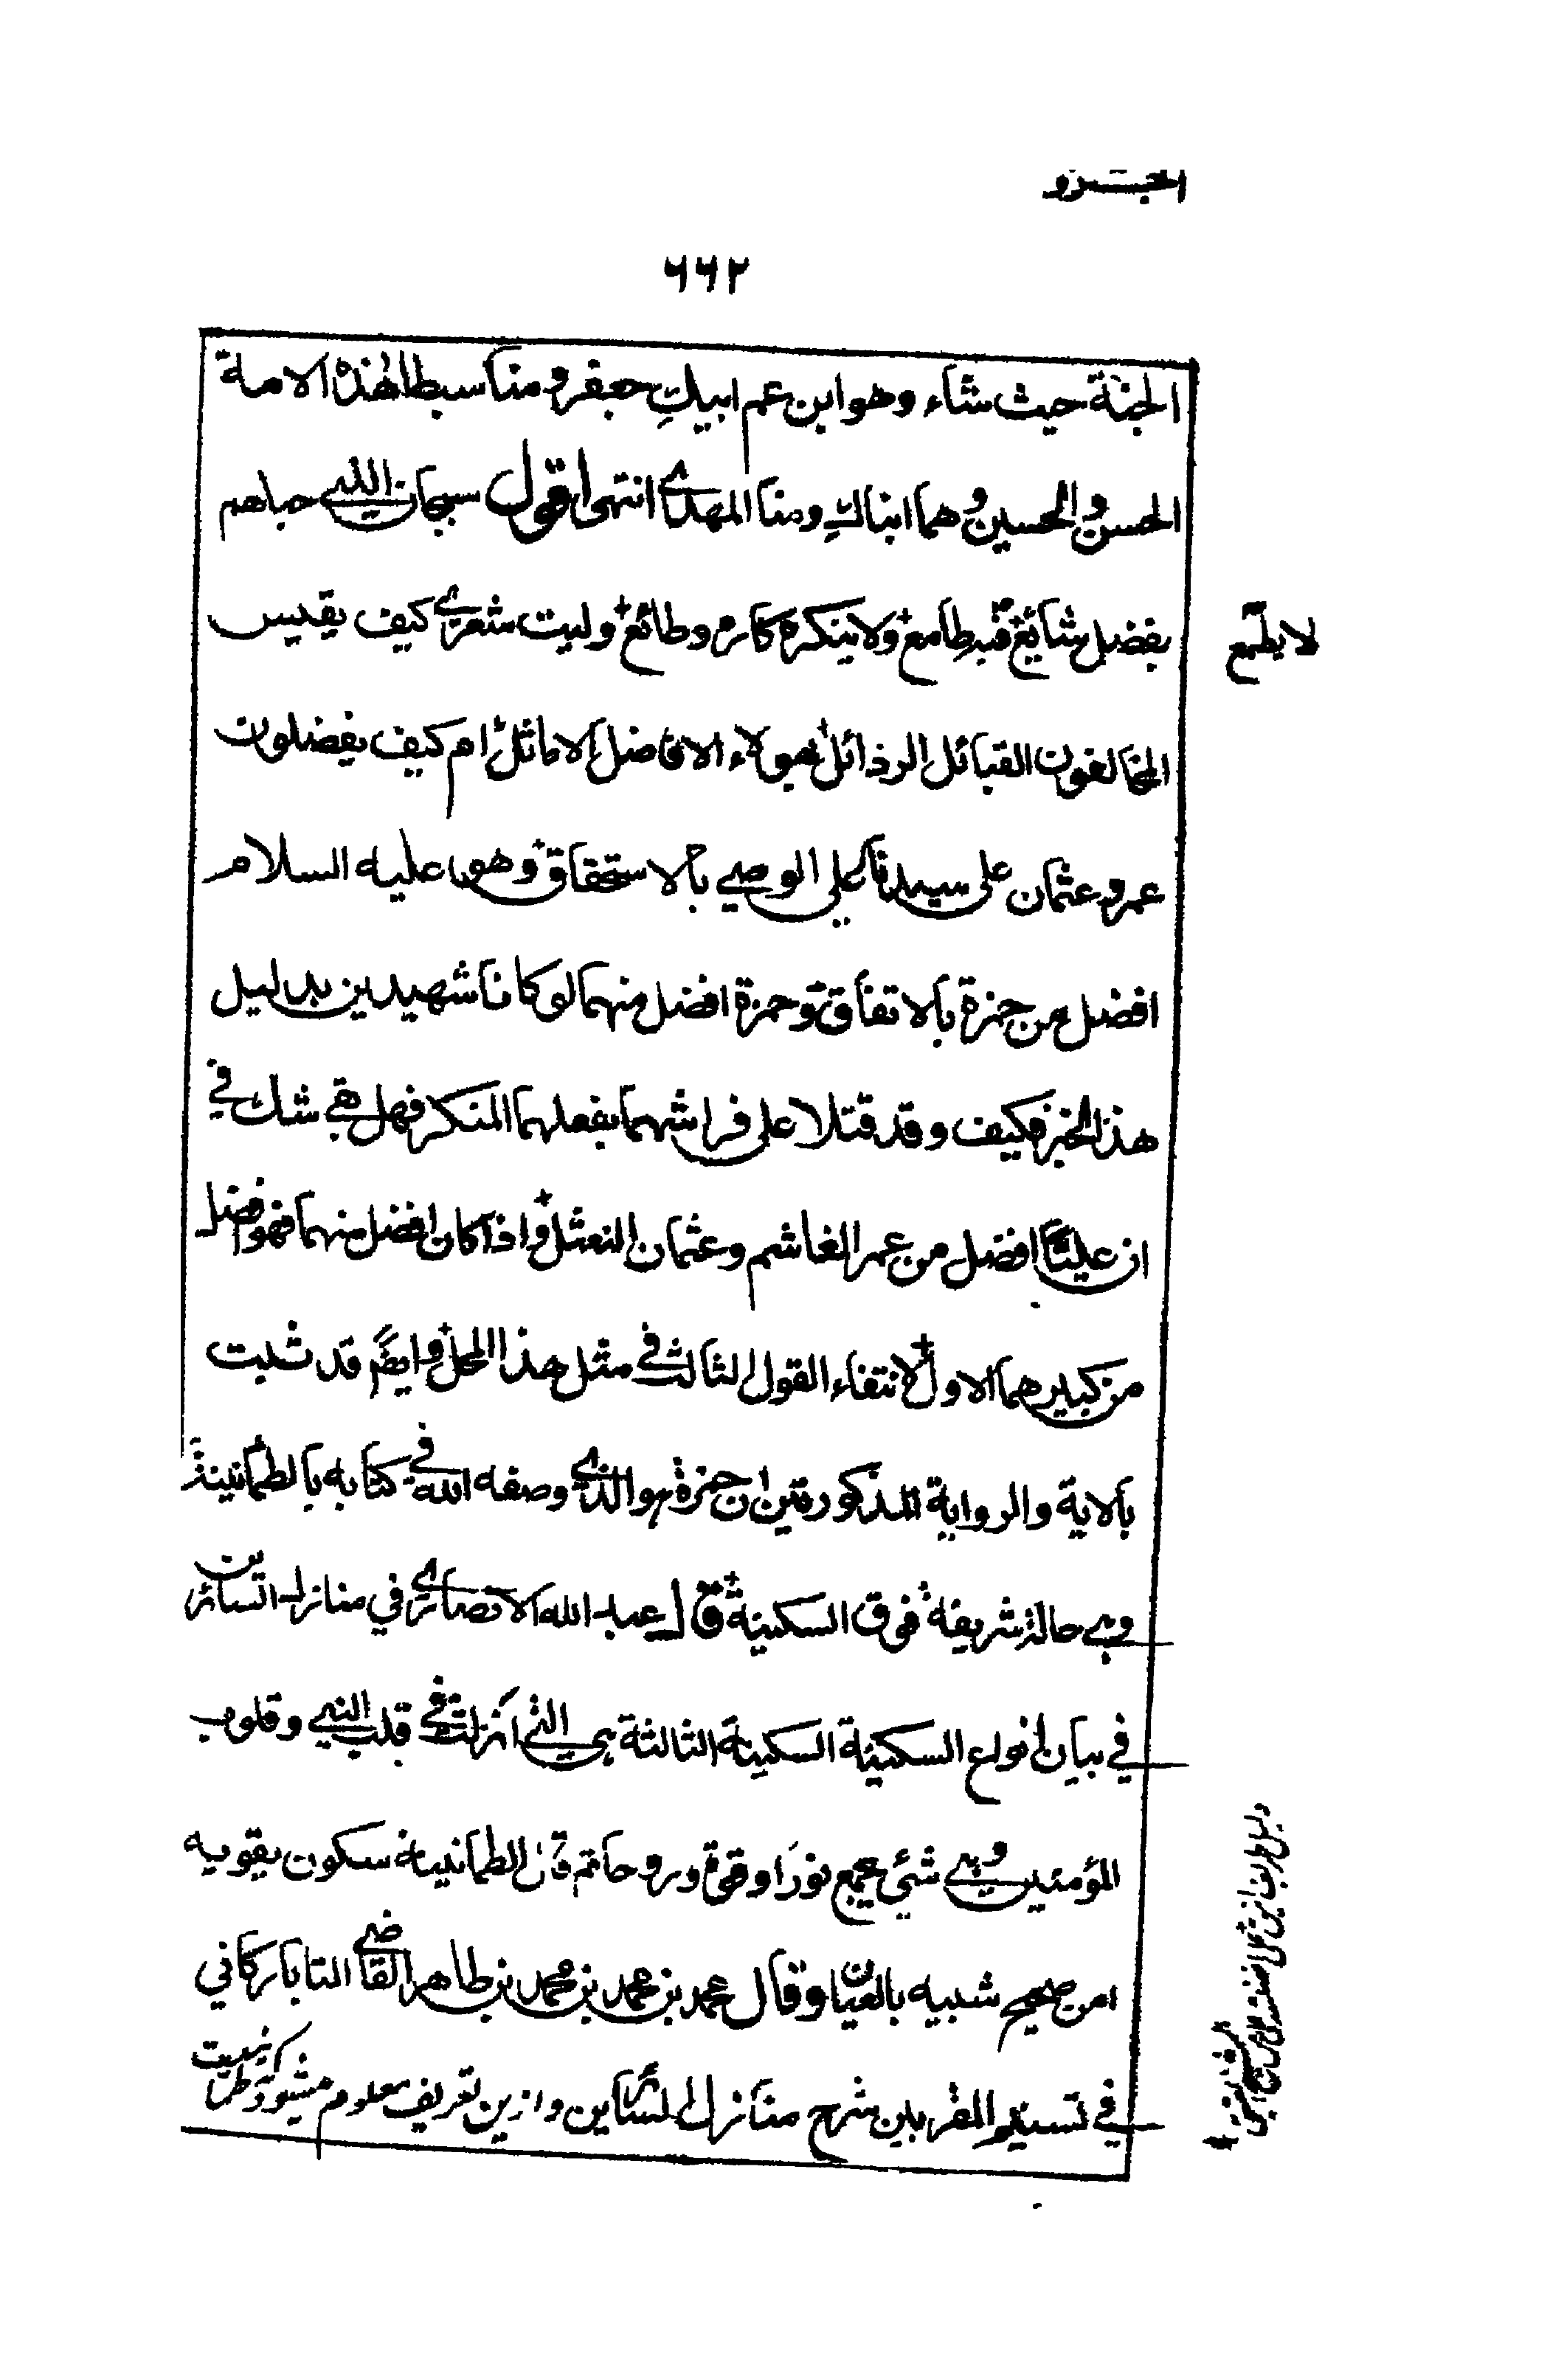 الجزو
٦٦٢
الجنة حيث شاء وهو ابن عم ابيك جعفر ومنا سبطا هذه الامة
الحسن والحسين وهما ابناك ومنا المهدى انتهى اقول سبحان الذى حباهم
بفضل شائع فيه طامع ولا ينكره كاره وطائع وليت شعرى كيف يقيس
لا يطمع
المخالفون القبائل الرذائل بهولاء الافاضل الاماثل ام كيف يفضلون
عمر وعثمان على سيدنا على الوصى بالاستحقاق وهو عليه السلام
افضل من حمزة بالاتفاق وحمزة افضل منهما لو كانا شهيدين بدليل
هذا الخبر فكيف وقد قتلا على فراشهما بفعلهما المنكر فهل بقى شك فى
ان عليّا افضل من عمر الغاشم وعثمان النعثل واذا كان افضل منهما فهو افضل
من كبيرهما الاول لانتفاء القول الثالث فى مثل هذا المحل وايضًا قد ثبت
بالاية والرواية المذكورتين ان حمزة هو الذى وصفه الله فى كتابه بالطمانينة
وهى حالة شريفة فوق السكينة قال عبد الله الانصارى في منازل السائرين
في بيان انواع السكينة السكينة الثالثة هى التى انزلت فى قلب النبى وقلوب
المؤمنين وهى شئ يجمع نورا وقوة وروحا ثم قال الطمانينة سكون يقويه
امن صحيح شبيه بالعيان وقال محمد بن محمد بن محمد بن طاهر القاضى التاباركاني
في تسنيم المقربين شرح منازل السائرين وازين تعريف معلوم ميشود كه طمانينت